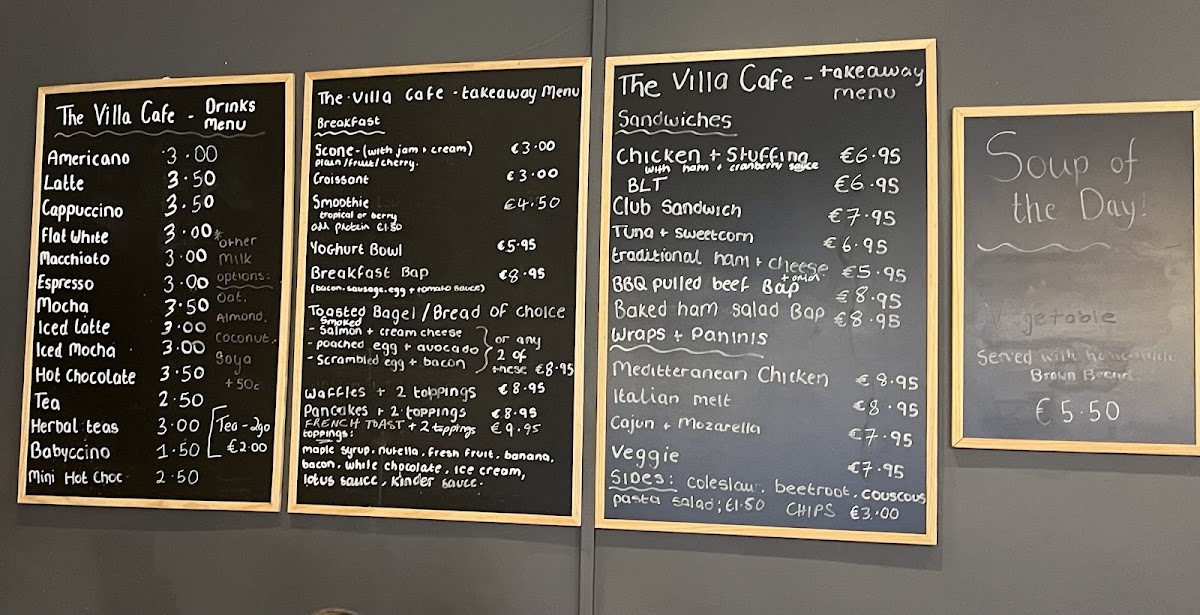 The Villa Cafe - Drinks Menu
Americano 3.00
Latte 3.50
Cappuccino 3.50
Flat White 3.00
Macchiato 3.00
Espresso 3.00
Mocha 3.50
Iced Latte 3.00
Iced Mocha 3.00
Hot Chocolate 3.50
Tea 2.50
Herbal teas 3.00
Babyccino 1.50
Mini Hot Choc 2.50
*other
milk
options:
Oat,
Almond,
Coconut,
Soya
+50c
Tea-2go
€2.00
The Villa Cafe - takeaway Menu
Breakfast
Scone-(with jam + cream) €3.00
plain/fruit/cherry.
Croissant €3.00
Smoothie €4.50
tropical or berry
add protein €1.50
Yoghurt Bowl €5.95
Breakfast Bap €8.95
(bacon, sausage, egg + tomato sauce)
Toasted Bagel/Bread of choice
- Smoked Salmon + cream cheese
- poached egg + avocado
- Scrambled egg + bacon
or any
2 of
these €8.95
Waffles + 2 toppings €8.95
Pancakes + 2 toppings €8.95
FRENCH TOAST + 2 toppings €9.95
toppings:
maple syrup, nutella, fresh fruit, banana,
bacon, white chocolate, ice cream,
lotus sauce, kinder sauce.
The Villa Cafe - takeaway menu
Sandwiches
Chicken + Stuffing €6.95
with ham + cranberry sauce
BLT €6.95
Club Sandwich €7.95
Tuna + sweetcorn €6.95
traditional ham + cheese €5.95
+ onion
BBQ pulled beef Bap €8.95
Baked ham salad Bap €8.95
Wraps + Paninis
Meditteranean Chicken €8.95
Italian melt €8.95
Cajun + Mozarella €7.95
Veggie €7.95
Sides: coleslaw, beetroot, couscous
pasta salad; €1.50 CHIPS €3.00
Soup of
the Day!
Vegetable
Served with homemade
Brown Bread
€5.50